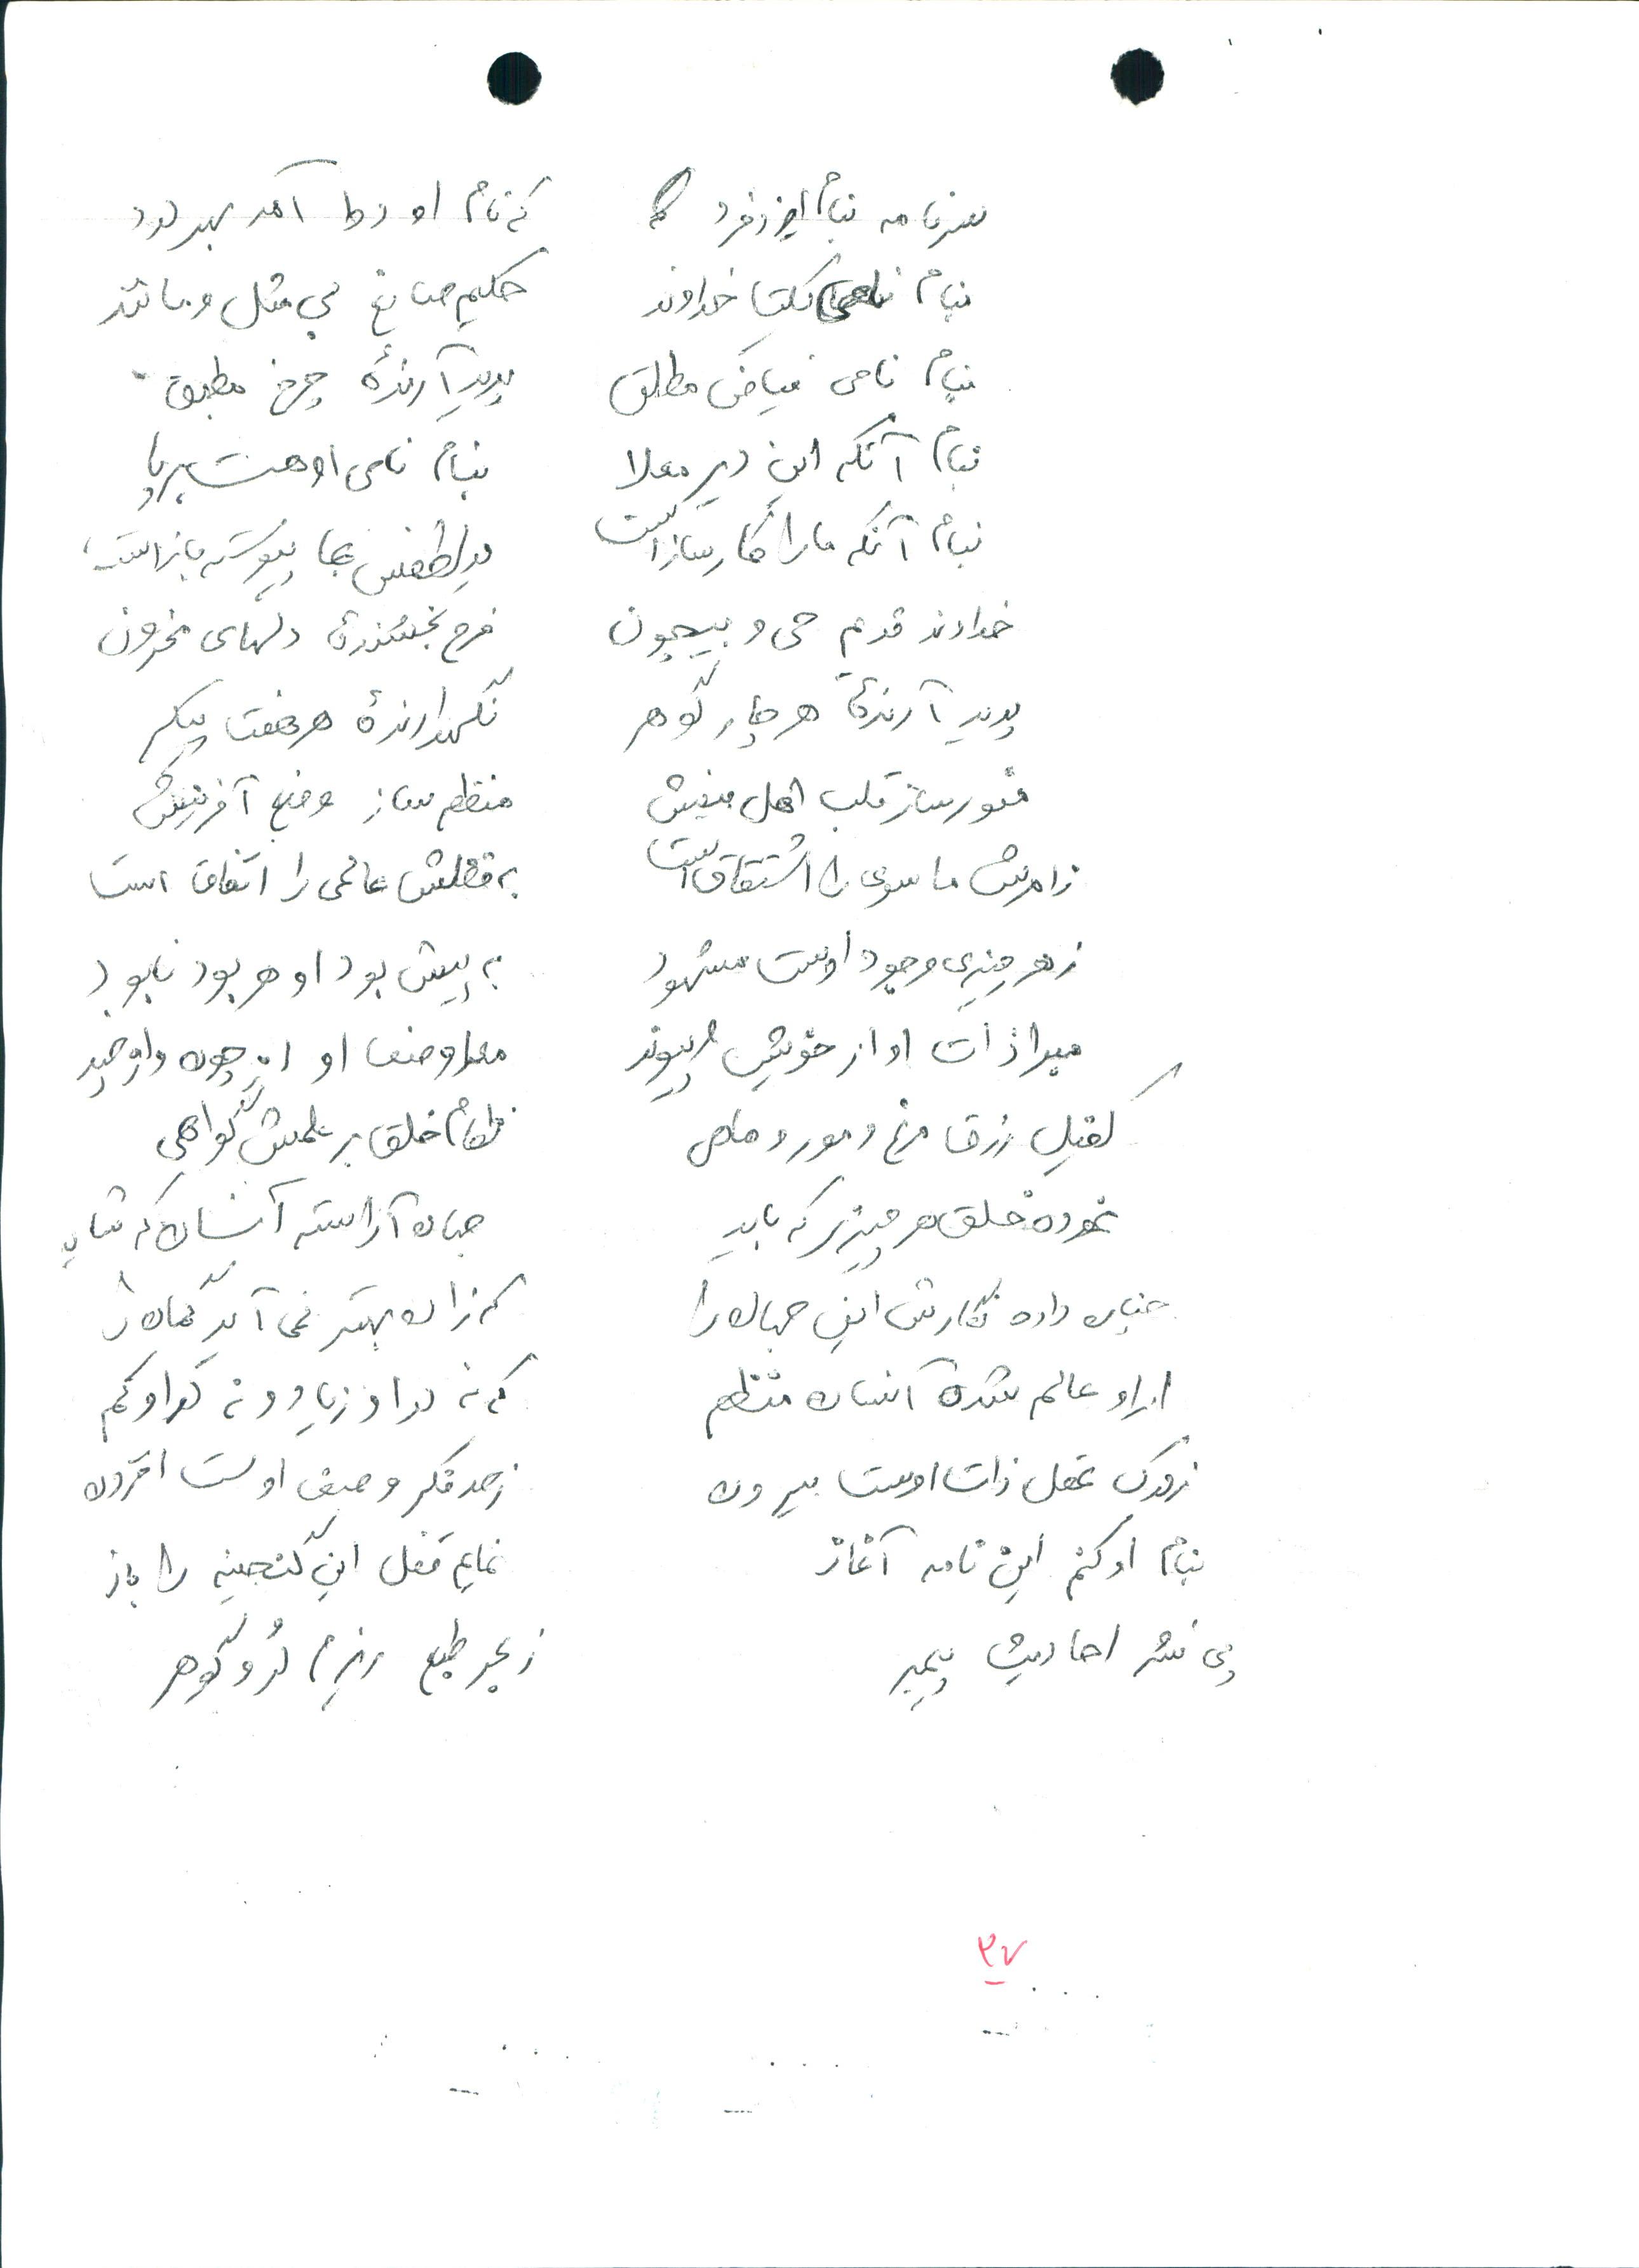 سرنامه بنام ایزد فرد که نام او دوا آمد بهر درد
بنام نامی یکتا خداوند حکیم صانع بی مثل و مانند
بنام نامی فیاض مطلق پدید آرندهٔ چرخ مطبق
بنام آنکه این دیر معلا بنام نامی او هست برپا
بنام آنکه ما را کارساز است در لطفش بما پیوسته باز است
خداوند قدیم حی و بیچون فرح بخشندهٔ دلهای محزون
پدید آرندهٔ هر چار گوهر نگهدارندهٔ هر هفت پیکر
منور ساز قلب اهل بینش منظم ساز وضع آفرینش
ز امرش ماسوی را اشتقاق است به فضلش عالمی را اتفاق است
ز هر چیزی وجود اوست مشهود به پیش بود او هر بود نابود
مبرا ذات او از خویش و پیوند معرا وصف او از چون و از چند
کفیل رزق مرغ و مور و ماهی نظام خلق بر علمش گواهی
نموده خلق هر چیزی که باید جهان آراسته آنسان که شاید
چنان داده نگارش این جهان را که زان بهتر نمی آید گمان را
از او عالم شده آنسان منظم که نه در او زیاد و نه در او کم
ز درک عقل ذات اوست بیرون ز حد فکر وصف اوست افزون
بنام او کنم این نامه آغاز نمایم قفل این گنجینه را باز
پی نشر احادیث پیمبر ز بحر طبع ریزم در و گوهر
۳۷